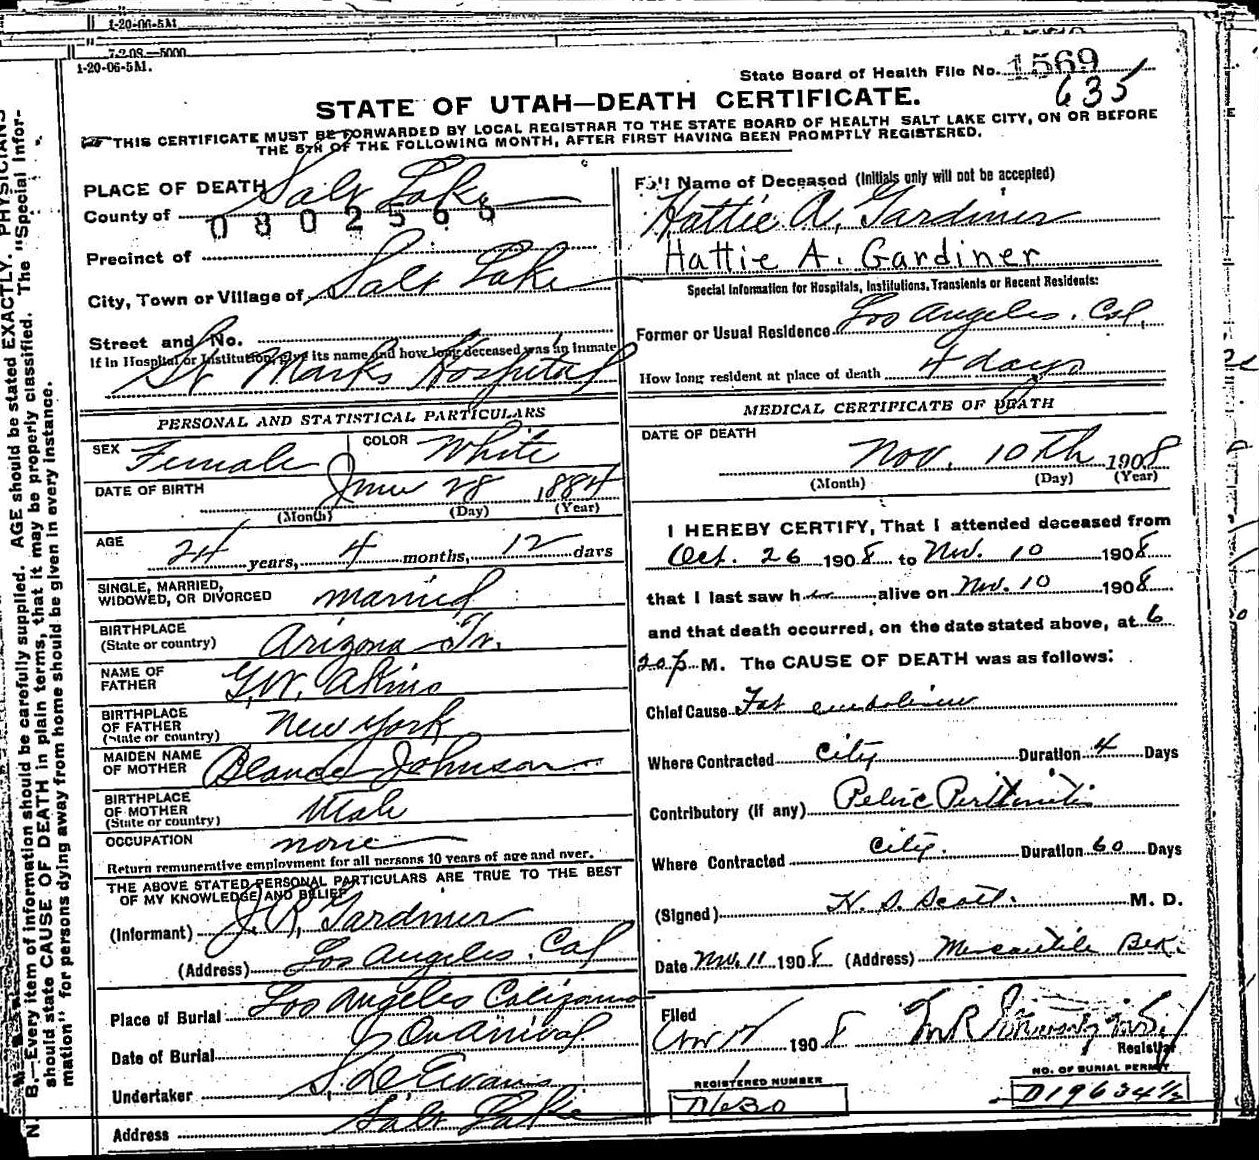 1-20-06-5M.
7-2-08.—5000
1-20-06-5M.
State Board of Health File No. 1569
635
STATE OF UTAH—DEATH CERTIFICATE.
THIS CERTIFICATE MUST BE FORWARDED BY LOCAL REGISTRAR TO THE STATE BOARD OF HEALTH SALT LAKE CITY, ON OR BEFORE
THE 5TH OF THE FOLLOWING MONTH, AFTER FIRST HAVING BEEN PROMPTLY REGISTERED.
PLACE OF DEATH
County of Salt Lake
0802566
Precinct of
City, Town or Village of Salt Lake
Street and No.
If in Hospital or Institution, give its name and how long deceased was an Inmate
St Marks Hospital
PERSONAL AND STATISTICAL PARTICULARS
SEX Female COLOR White
DATE OF BIRTH June 28 1884
(Month) (Day) (Year)
AGE 24 years, 4 months, 12 days
SINGLE, MARRIED,
WIDOWED, OR DIVORCED married
BIRTHPLACE
(State or country) Arizona Tr.
NAME OF
FATHER G.W. Akins
BIRTHPLACE
OF FATHER
(State or country) New York
MAIDEN NAME
OF MOTHER Johnson
BIRTHPLACE
OF MOTHER
(State or country) Utah
OCCUPATION none
Return remunerative employment for all persons 10 years of age and over.
THE ABOVE STATED PERSONAL PARTICULARS ARE TRUE TO THE BEST
OF MY KNOWLEDGE AND BELIEF
(Informant) J.R. Gardiner
(Address) Los Angeles. Cal
Place of Burial Los Angeles California
Date of Burial On Arrival
Undertaker S. D. Evans
Address Salt Lake
Full Name of Deceased (Initials only will not be accepted)
Hattie A. Gardiner
Hattie A. Gardiner
Special Information for Hospitals, Institutions, Transients or Recent Residents:
Former or Usual Residence Los Angeles. Cal,
How long resident at place of death 4 days
MEDICAL CERTIFICATE OF DEATH
DATE OF DEATH
Nov. 10th 1908
(Month) (Day) (Year)
I HEREBY CERTIFY, That I attended deceased from
Oct. 26 1908 to Nov. 10 1908
that I last saw her alive on Nov. 10 1908
and that death occurred, on the date stated above, at 6
20 p M. The CAUSE OF DEATH was as follows:
Chief Cause Fat embolism
Where Contracted City Duration 4 Days
Contributory (if any) Pelvic Peritonitis
Where Contracted City. Duration 60 Days
(Signed) H. S. Scott. M. D.
Date Nov. 11 1908 (Address) Mercantile Blk.
Filed
Nov 1908
Registrar
REGISTERED NUMBER
D630
NO. OF BURIAL PERMIT
D19634½
N. B.—Every item of information should be carefully supplied. AGE should be stated EXACTLY. PHYSICIANS
should state CAUSE OF DEATH in plain terms, that it may be properly classified. The "Special Infor-
mation" for persons dying away from home should be given in every instance.